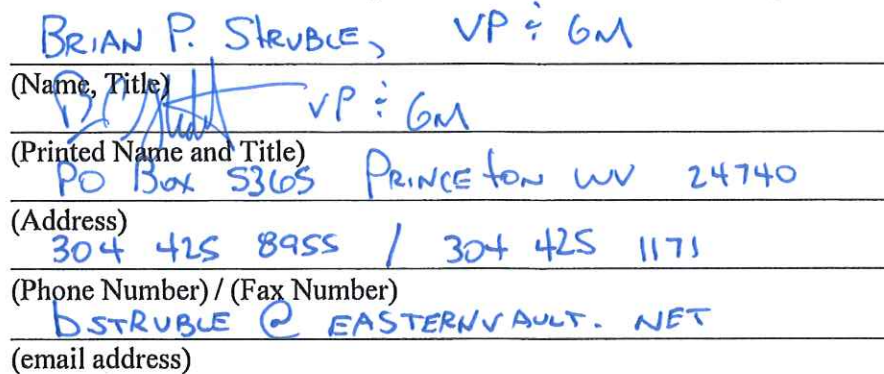 BRIAN P. STRUBLE, VP & GM
(Name, Title)
VP & GM
(Printed Name and Title)
PO Box 5365 PRINCETON WV 24740
(Address)
304 425 8955 / 304 425 1171
(Phone Number) / (Fax Number)
bSTRUBLE @ EASTERNVAULT. NET
(email address)